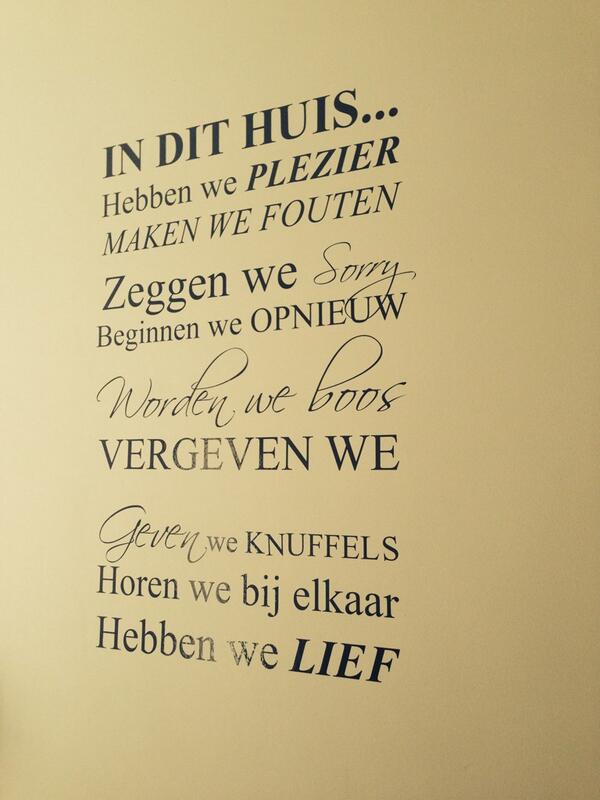 IN DIT HUIS...
Hebben we PLEZIER
MAKEN WE FOUTEN
Zeggen we Sorry
Beginnen we OPNIEUW
Worden we boos
VERGEVEN WE
Geven we KNUFFELS
Horen we bij elkaar
Hebben we LIEF